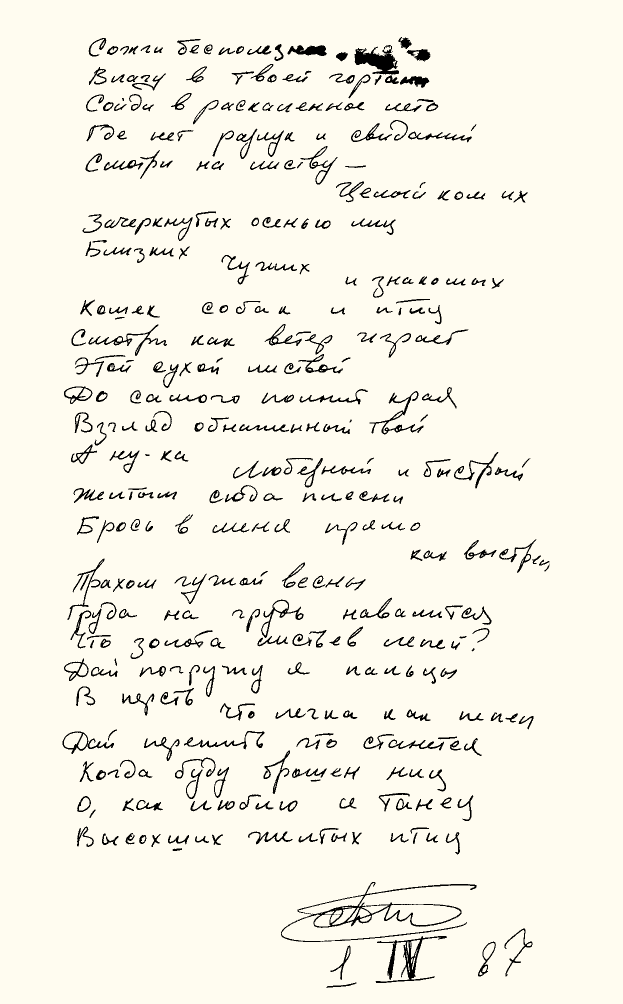 Сожги бесполезное
Влагу в твоей гортани
Сойди в раскаленное лето
Где нет разлук и свиданий
Смотри на листву —
Целый ком их
Зачеркнутых осенью лиц
Близких чужих и знакомых
Кошек собак и птиц
Смотри как ветер играет
Этой сухой листвой
До самого помнит края
Взгляд обнаженный твой
А ну-ка Любезный и быстрый
Желтым сюда плесни
Брось в меня прямо
как выстрел
Прахом чужой весны
Груда на грудь навалится
Что золота листьев лепей?
Дай погружу я пальцы
В персть что легка как пепел
Дай пережить что станется
Когда буду брошен ниц
О, как люблю я танец
Высохших желтых птиц
1 IV 87